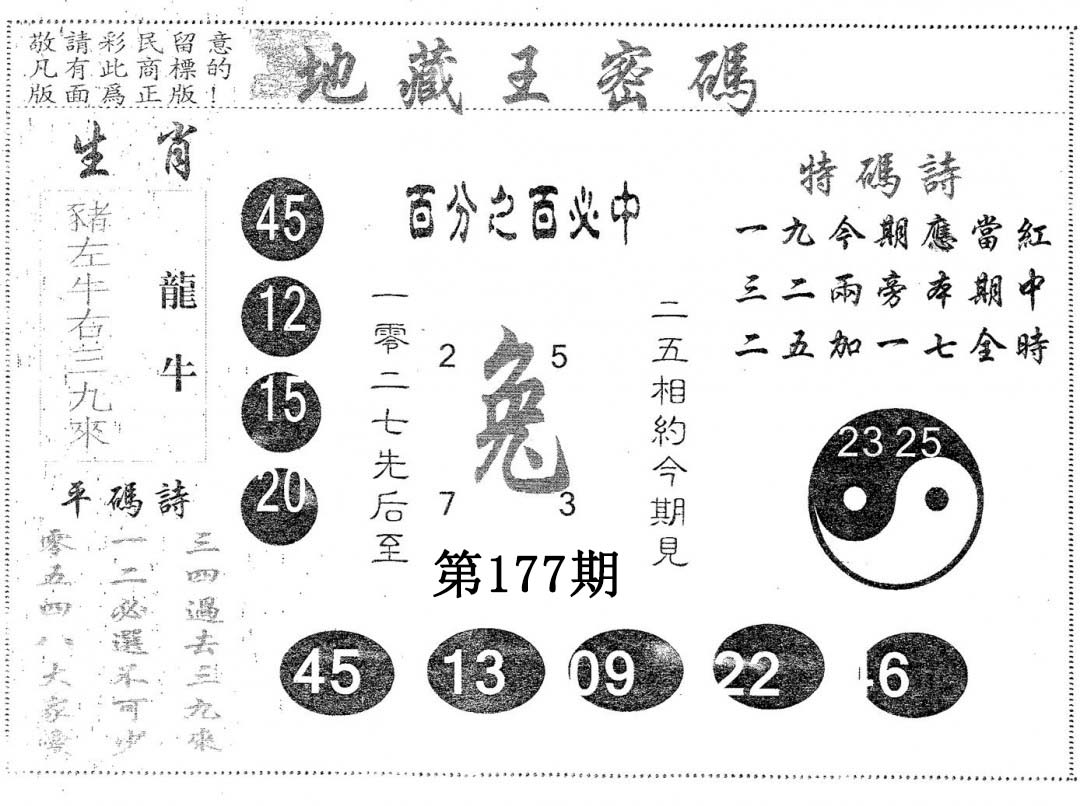 敬請彩民留意
凡有此商標的
版面爲正版！
地藏王密碼
生肖
豬左牛右三九來
龍牛
平碼詩
三四過去三九來
一二必選不可少
零五四八大家
45
12
15
20
百分之百必中
一零二七先后至
2 5
兔
7 3
二五相約今期見
第177期
特碼詩
一九今期應當紅
三二兩旁本期中
二五加一七全時
23 25
45 13 09 22 6